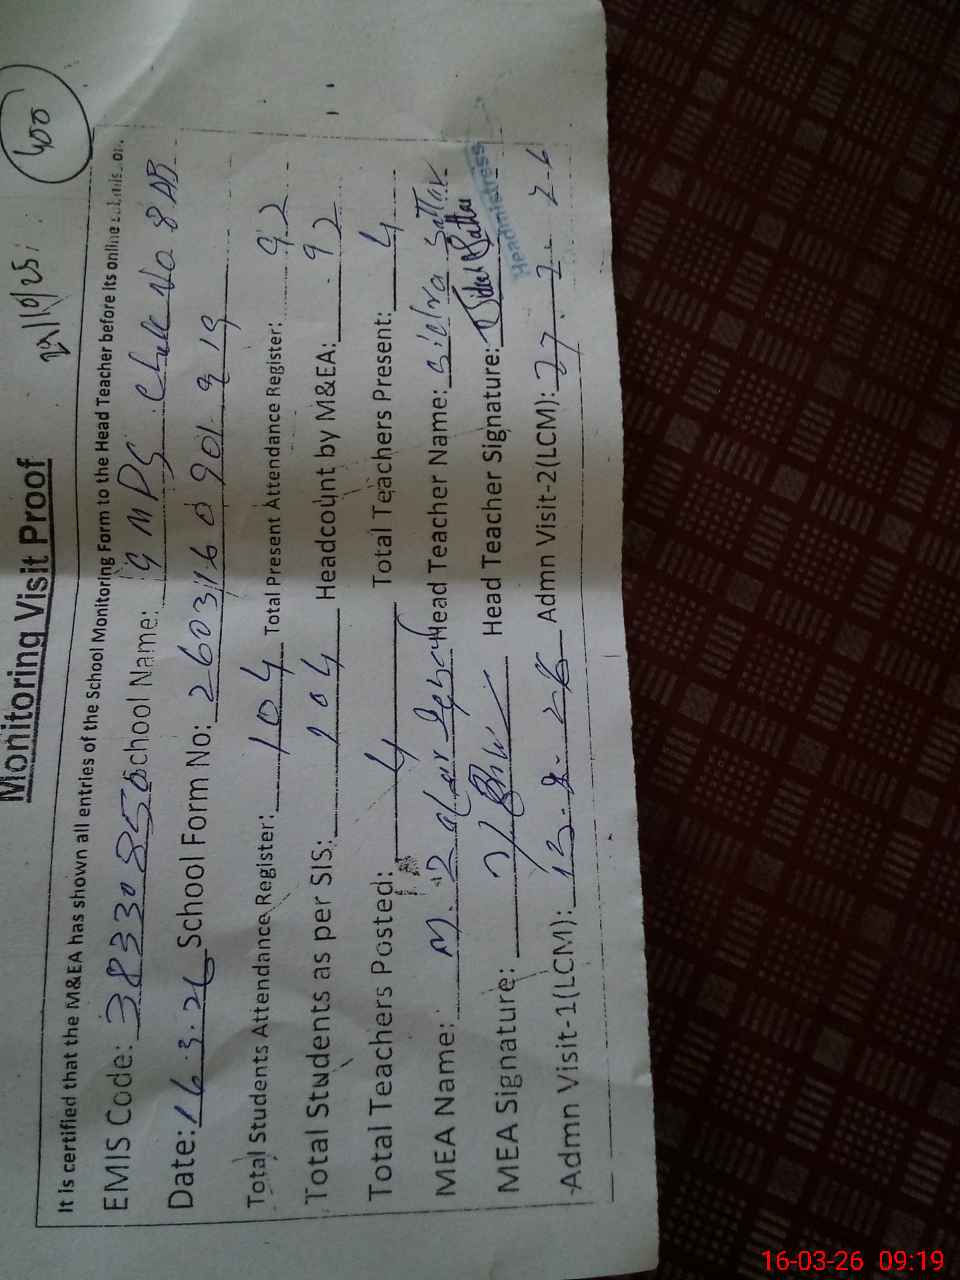 400
Monitoring Visit Proof
It is certified that the M&EA has shown all entries of the School Monitoring Form to the Head Teacher before its online submission.
EMIS Code: 38330850 School Name: GMPS Chak No 8 AB
Date: 16.3.26 School Form No: 260316 0 901 919
Total Students Attendance Register: 104 Total Present Attendance Register: 92
Total Students as per SIS: 104 Headcount by M&EA: 92
Total Teachers Posted: 4 Total Teachers Present: 4
MEA Name: M. Head Teacher Name: Sidra Sattar
MEA Signature: Head Teacher Signature: Sidra Sattar
Headmistress
Admn Visit-1(LCM): Admn Visit-2(LCM):
16-03-26 09:19